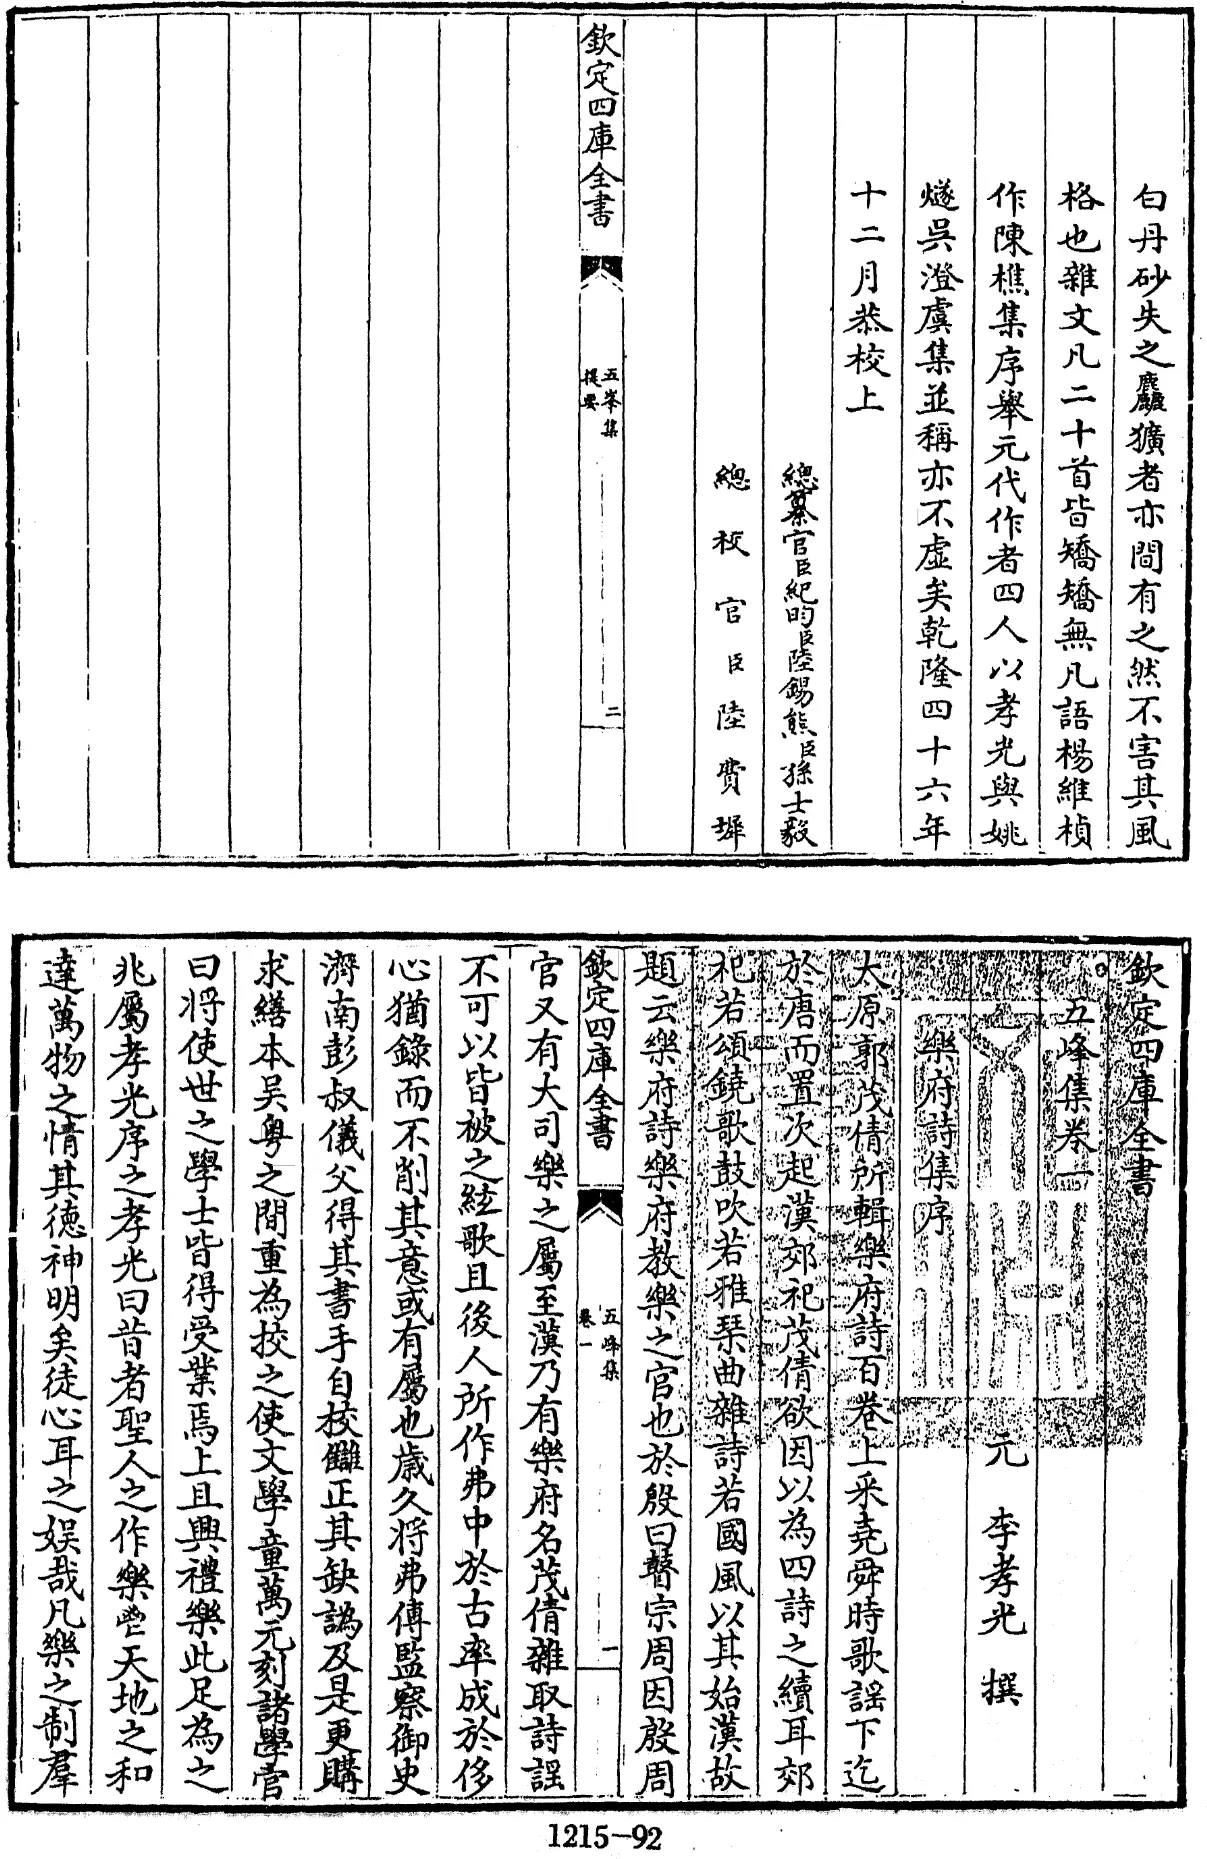 白丹砂失之麤獷者亦間有之然不害其風
格也雜文凡二十首皆矯矯無凡語楊維楨
作陳樵集序舉元代作者四人以孝光與姚
燧吳澄虞集並稱亦不虛矣乾隆四十六年
十二月恭校上
總纂官臣紀昀臣陸錫熊臣孫士毅
總校官臣陸費墀
欽定四庫全書
五峯集
提要
二
欽定四庫全書
五峰集卷一
元 李孝光 撰
樂府詩集序
太原郭茂倩所輯樂府詩百卷上采堯舜時歌謡下迄
於唐而置次起漢郊祀茂倩欲因以為四詩之續耳郊
祀若頌鐃歌鼓吹若雅琴曲雜詩若國風以其始漢故
題云樂府詩樂府教樂之官也於殷曰瞽宗周因殷周
欽定四庫全書
五峰集
卷一
一
官又有大司樂之屬至漢乃有樂府名茂倩雜取詩謡
不可以皆被之絃歌且後人所作弗中於古率成於侈
心猶錄而不削其意或有屬也歲久將弗傳監察御史
濟南彭叔儀父得其書手自校讎正其缺譌及是更購
求繕本吴粤之間重為挍之使文學童萬元刻諸學官
曰將使世之學士皆得受業焉上且興禮樂此足為之
兆屬孝光序之孝光曰昔者聖人之作樂些天地之和
達萬物之情其德神明矣徒心耳之娱哉凡樂之制羣
1215-92